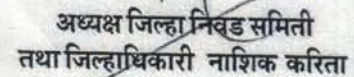 अध्यक्ष जिल्हा निवड समिती
तथा जिल्हाधिकारी नाशिक करिता